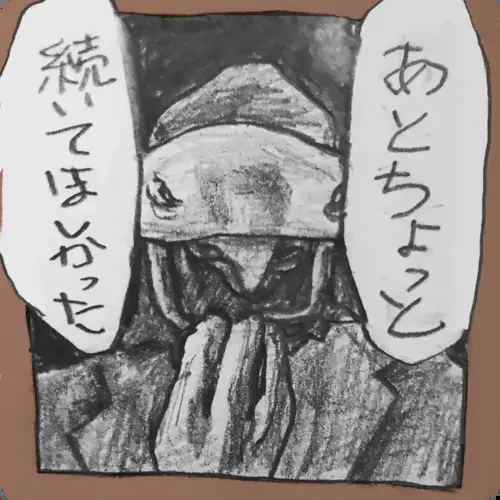 あとちょっと
続いてほしかった